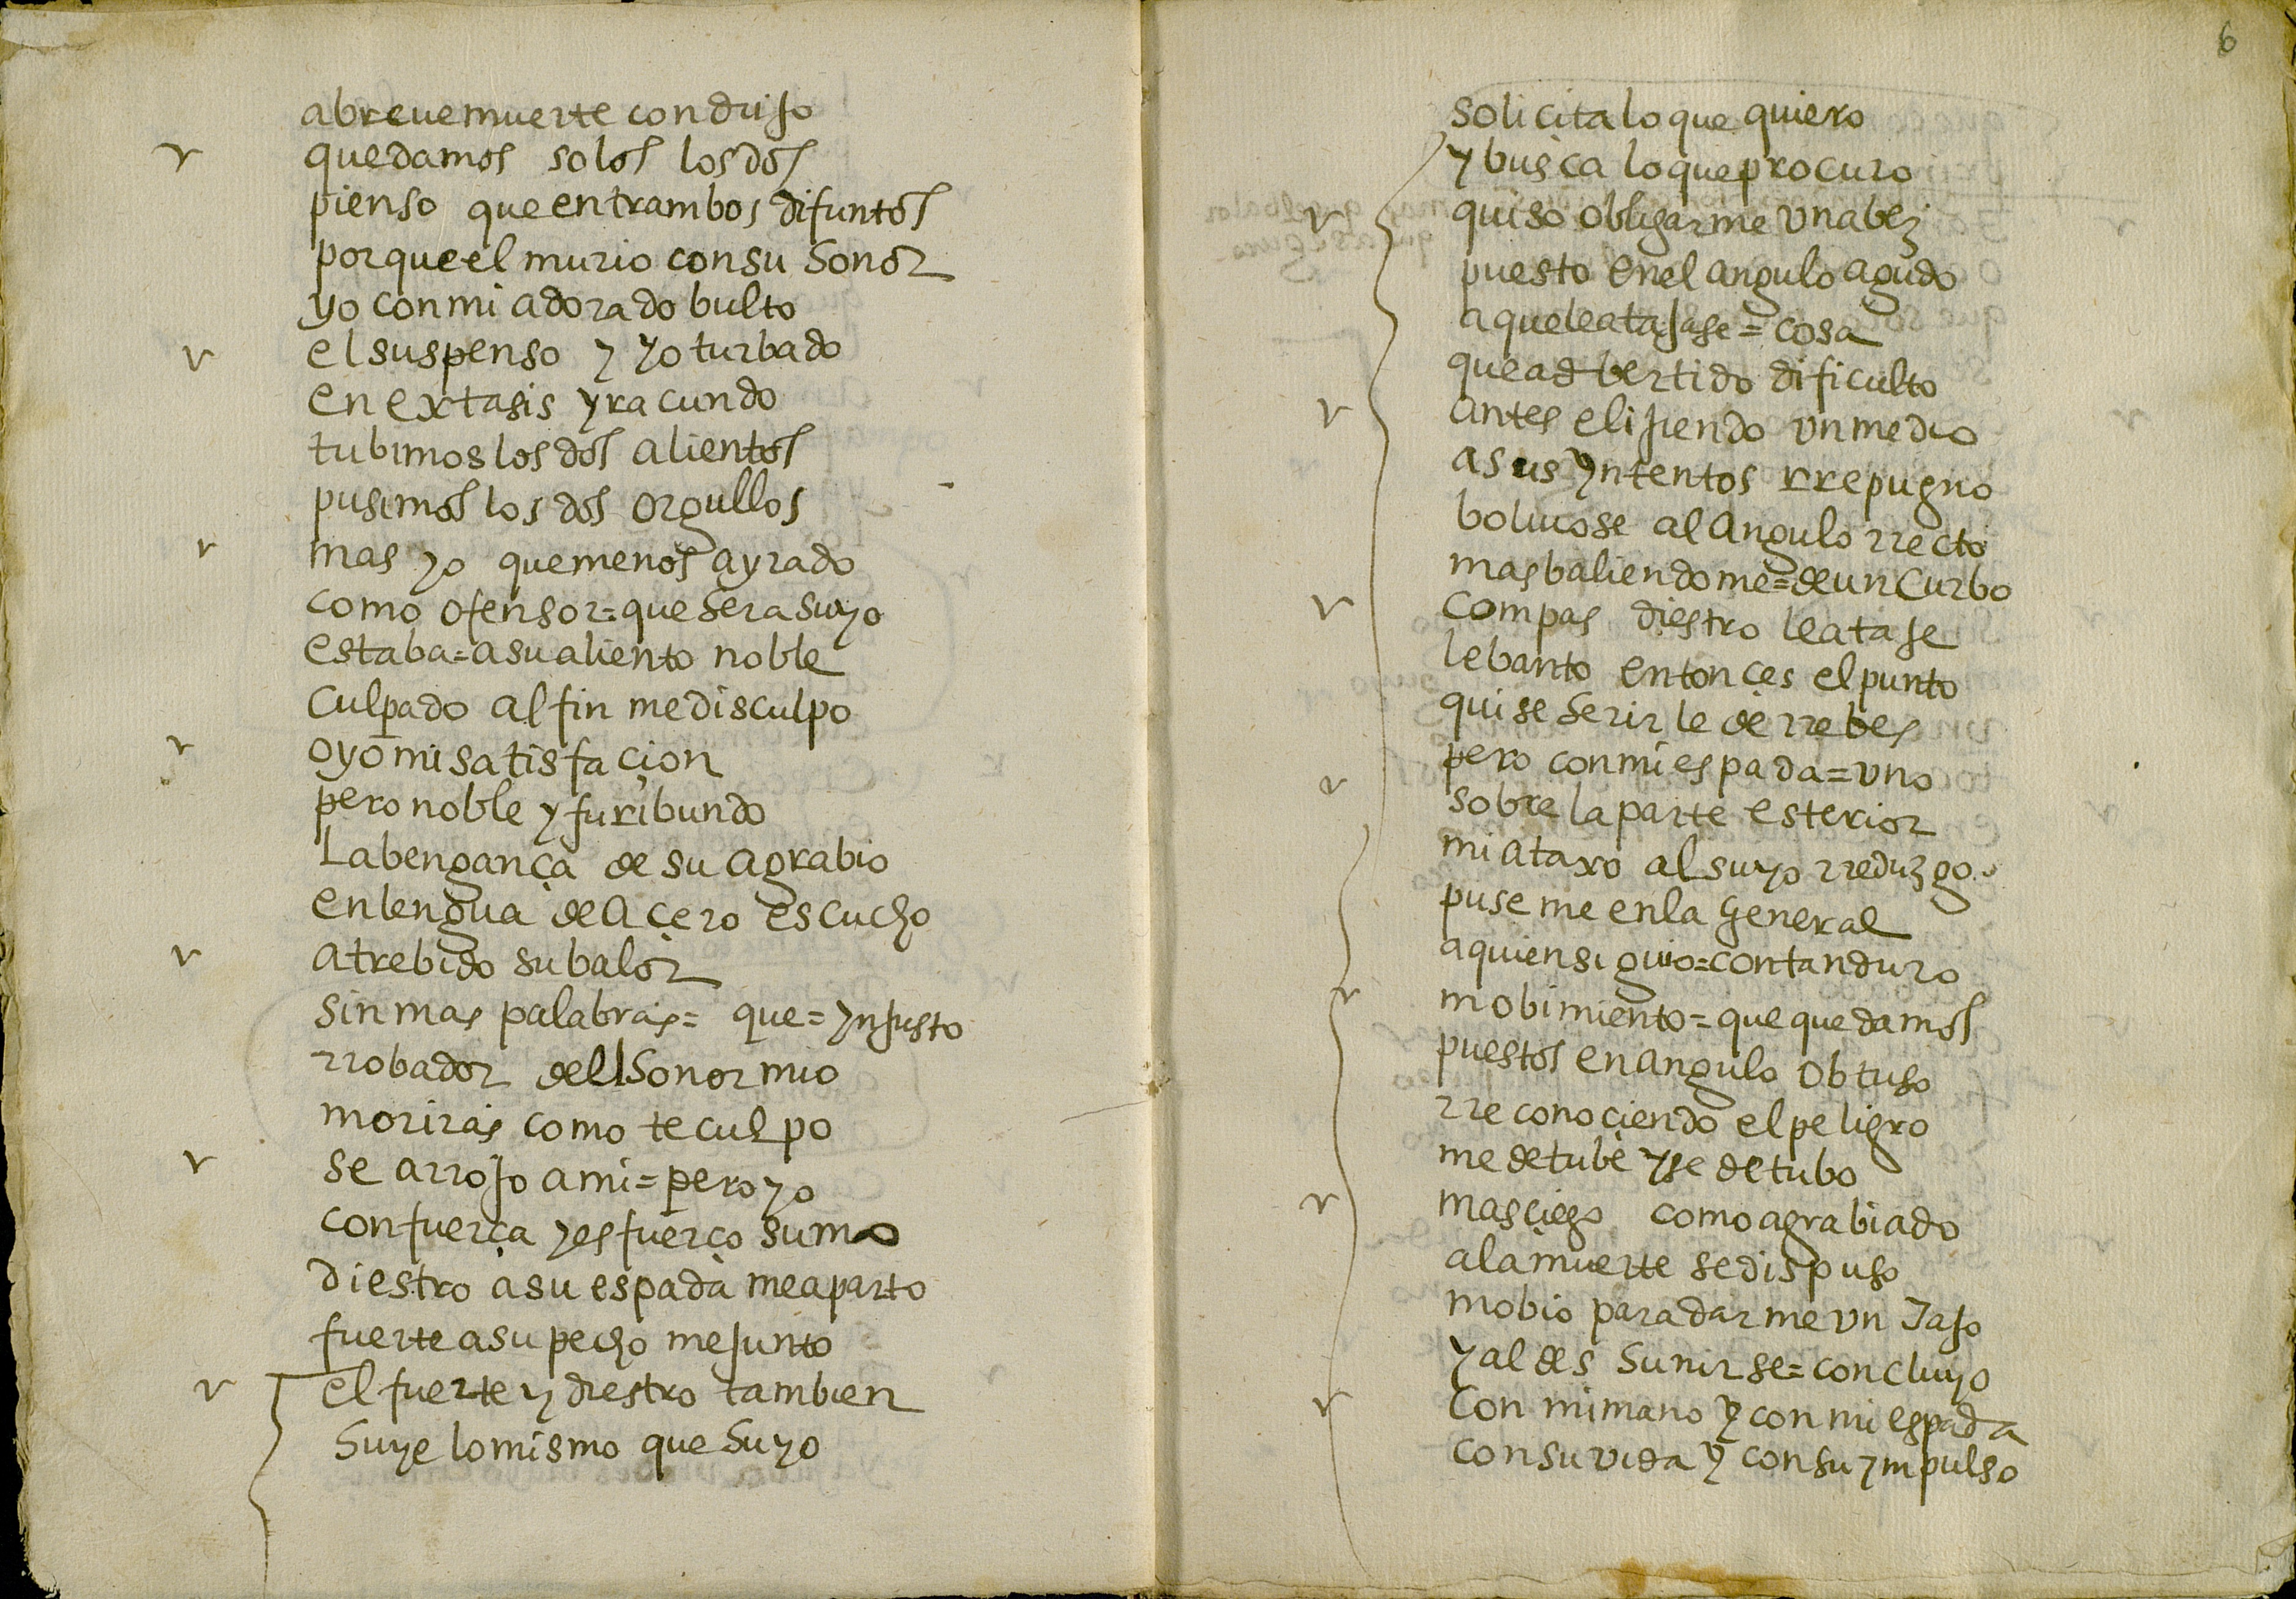 abreue muerte condujo
quedamos solos los dos
pienso que entrambos difuntos
porque el murio con su honor
yo con mi adorado bulto
el suspenso y yo turbado
en extasis yracundo
tubimos los dos alientos
pusimos los dos orgullos
mas yo que menos ayrado
como ofensor = que hera suyo
estaba = a su aliento noble
culpado al fin me disculpo
oyo mi satisfaçion
pero noble y furibundo
La bengança de su agrabio
en lengua de açero escucho
atrebido su balor
sin mas palabras = que = ynjusto
rrobador del honor mio
moriras como te culpo
se arrojo a mi = pero yo
con fuerça y esfuerço sumo
diestro a su espada me aparto
fuerte a su pecho me junto
el fuerte y diestro tambien
huye lo mismo que huyo
6
solicita lo que quiero
y busca lo que procuro
quiso obligarme vna bez
puesto en el angulo agudo
a que le atajase = cosa
que adbertido dificulto
antes elijiendo vn medio
a sus yntentos rrepugno
boluiose al angulo rrecto
mas baliendome = de un curbo
compas diestro le ataje
lebanto entonçes el punto
quise herirle de rrebes
pero con mi espada = vno
sobre la parte esterior
mi ataxo al suyo rreduzgo
puse me en la general
a quien siguio = con tan duro
mobimiento = que quedamos
puestos en angulo obtuso
rreconoçiendo el peligro
me detube y se detubo
mas çiego como agrabiado
a la muerte se dispuso
mobio para darme vn tajo
y al deshunirse = concluyo
con mi mano y con mi espada
con su vida y con su ympulso